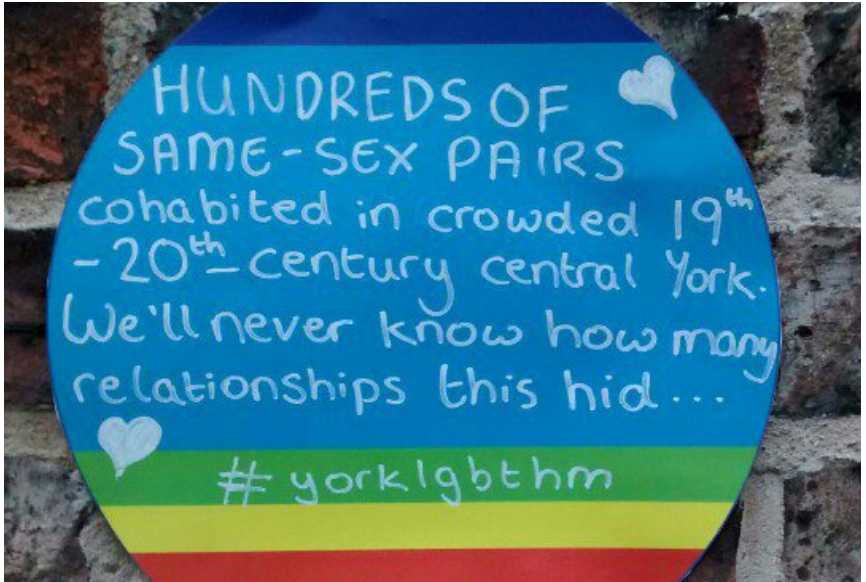 HUNDREDS OF
SAME-SEX PAIRS
cohabited in crowded 19th
-20th-century central York.
We'll never know how many
relationships this hid...
#yorklgbthm